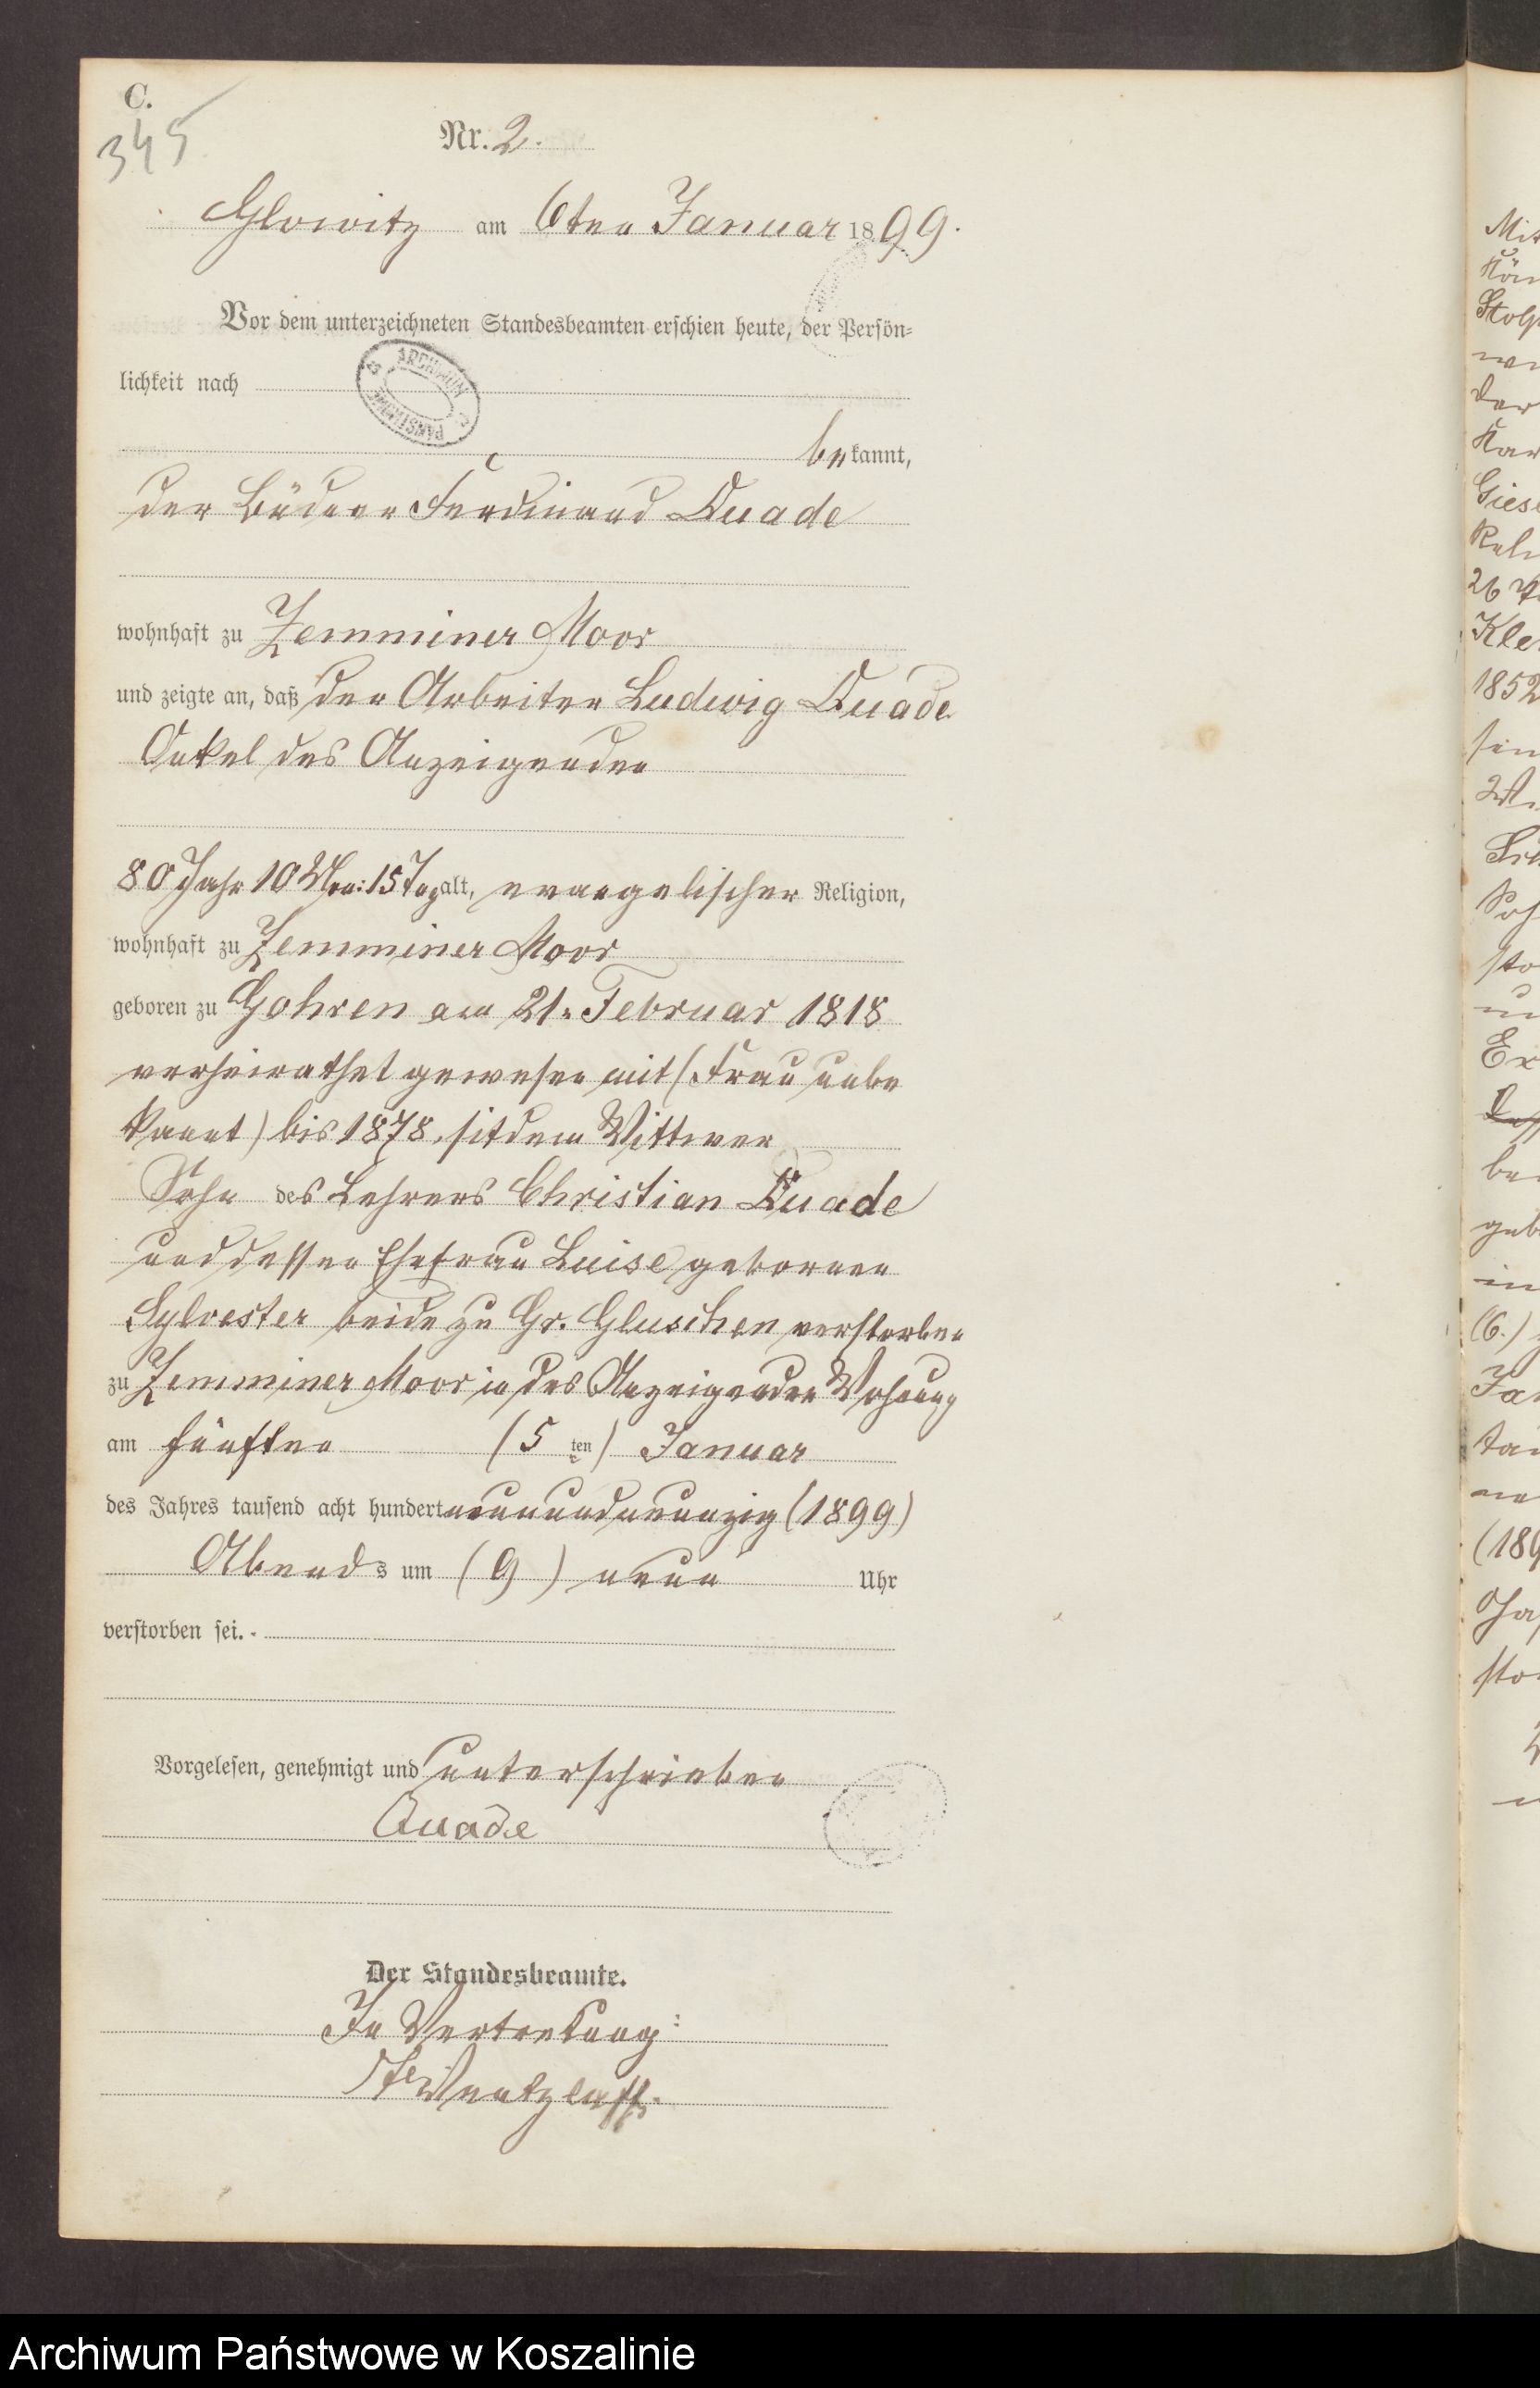 C.
345
Nr. 2.
Glowitz am 6ten Januar 1899.
Vor dem unterzeichneten Standesbeamten erschien heute, der Persön=
lichkeit nach
ARCHIWUM PAŃSTWOWE
bekannt,
der Büdner Ferdinand Quade
wohnhaft zu Zemminer Moor
und zeigte an, daß der Arbeiter Ludwig Quade
Onkel des Anzeigenden
80 Jahr 10 Mon: 15 Tag alt, evangelischer Religion,
wohnhaft zu Zemminer Moor
geboren zu Gohren am 21. Februar 1818
verheirathet gewesen mit (Frau unbe
kannt) bis 1878, sitdem Wittwer
Sohn des Lehrers Christian Quade
und dessen Ehefrau Luise geborenen
Sylvester beide zu Gr. Gluschen verstorben
zu Zemminer Moor in des Anzeigenden Wohnung
am fünften (5 ten) Januar
des Jahres tausend acht hundert neunundneunzig (1899)
Abends um (9) neun Uhr
verstorben sei.
Vorgelesen, genehmigt und unterschrieben
Quade
Der Standesbeamte.
In Vertretung:
Wentzlaff.
Mit
Stolp
der
Kar
Giese
26
Kle
1852
sein
sto
(6.)
(189
sto
Archiwum Państwowe w Koszalinie